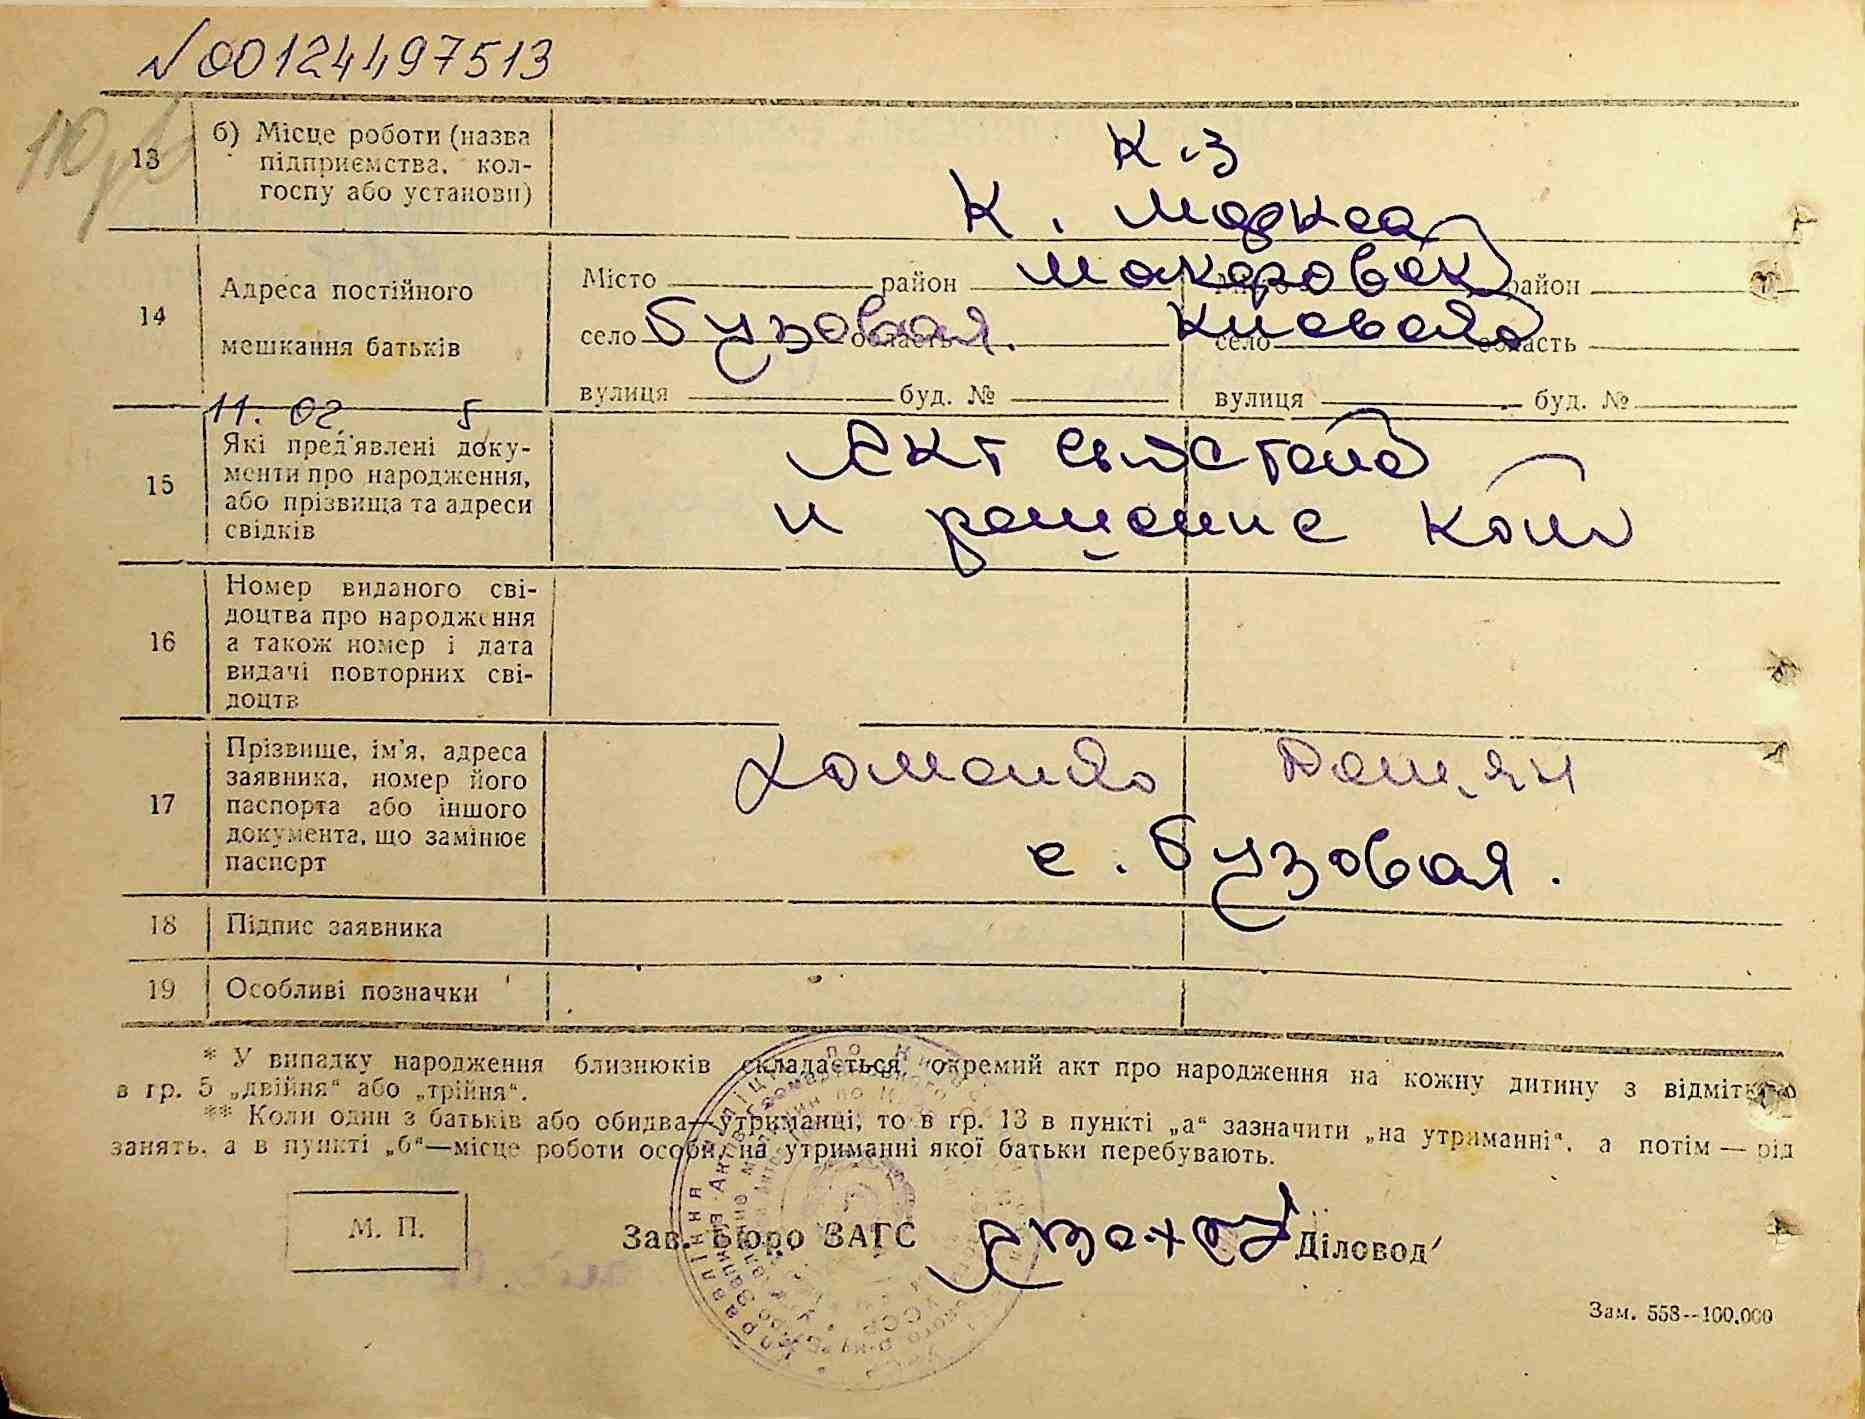 № 00124497513
13 б) Місце роботи (назва
підприємства, кол-
госпу або установи)
К.з
К. Маркса
14 Адреса постійного
мешкання батьків
Місто район Макаровск Місто район
село Бузовая. область Киевская село область
вулиця буд. № вулиця буд. №
11. 02. 5
15 Які пред'явлені доку-
менти про народження,
або прізвища та адреси
свідків
Акт
и решение
16 Номер виданого сві-
доцтва про народження
а також номер і дата
видачі повторних сві-
доцтв
17 Прізвище, ім'я, адреса
заявника, номер його
паспорта або іншого
документа, що замінює
паспорт
с. Бузовая.
18 Підпис заявника
19 Особливі позначки
* У випадку народження близнюків складається окремий акт про народження на кожну дитину з відміткою
в гр. 5 „двійня“ або „трійня“.
** Коли один з батьків або обидва—утриманці, то в гр. 13 в пункті „а“ зазначити „на утриманні“, а потім — рід
занять, а в пункті „б“—місце роботи особи, на утриманні якої батьки перебувають.
М. П.
Зав. Бюро ЗАГС Діловод
Зам. 558--100.000